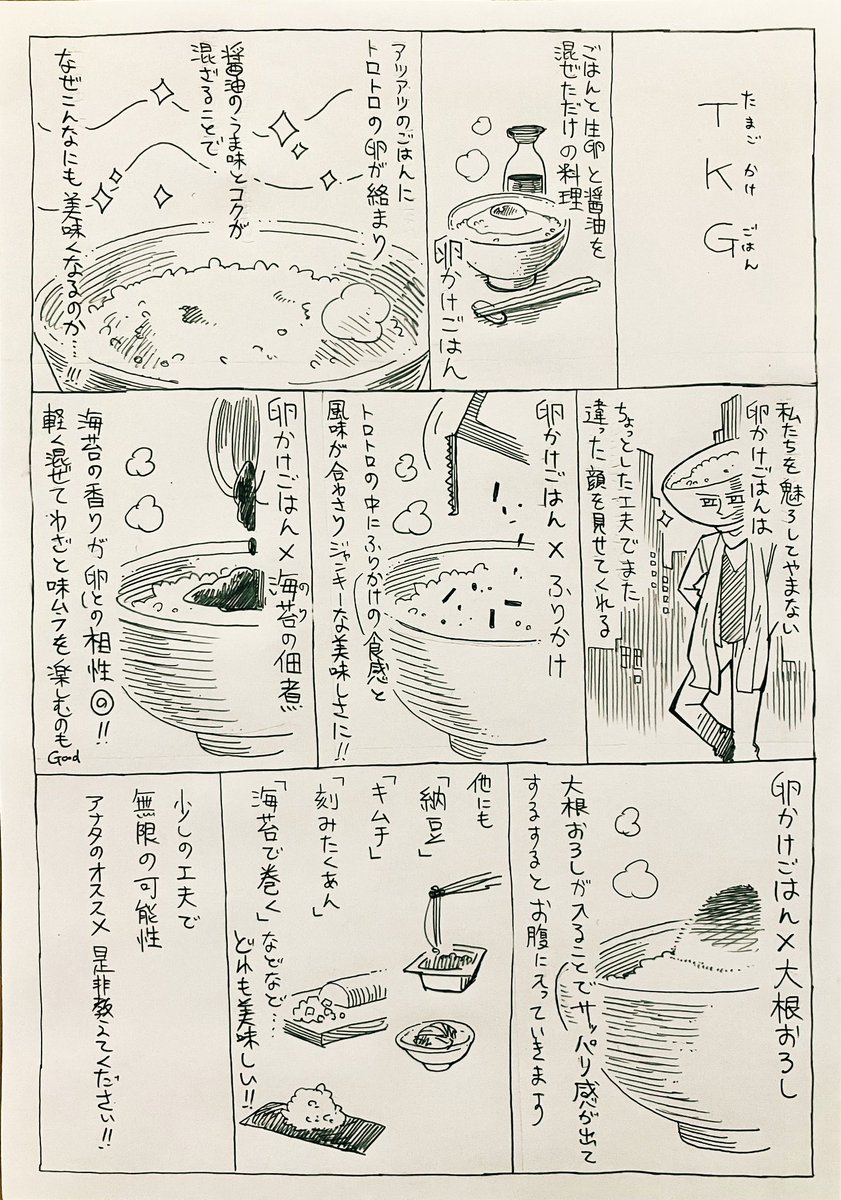 たまご
T
かけ
K
ごはん
G
ごはんと生卵と醤油を
混ぜただけの料理
卵かけごはん
アツアツのごはんに
トロトロの卵が絡まり
醤油のうま味とコクが
混ざることで
なぜこんなにも美味くなるのか…!!!
私たちを魅ろしてやまない
卵かけごはんは
ちょっとした工夫でまた
違った顔を見せてくれる
卵かけごはん×ふりかけ
トロトロの中にふりかけの食感と
風味が合わさりジャンキーな美味しさに!!
卵かけごはん×海苔の佃煮
のり
海苔の香りが卵との相性◎!!
軽く混ぜてわざと味ムラを楽しむのも
Good
卵かけごはん×大根おろし
大根おろしが入ることでサッパリ感が出て
するするとお腹に入っていきます
他にも
「納豆」
「キムチ」
「刻みたくあん」
「海苔で巻く」などなど…
どれも美味しい!!
少しの工夫で
無限の可能性
アナタのオススメ是非教えてください!!